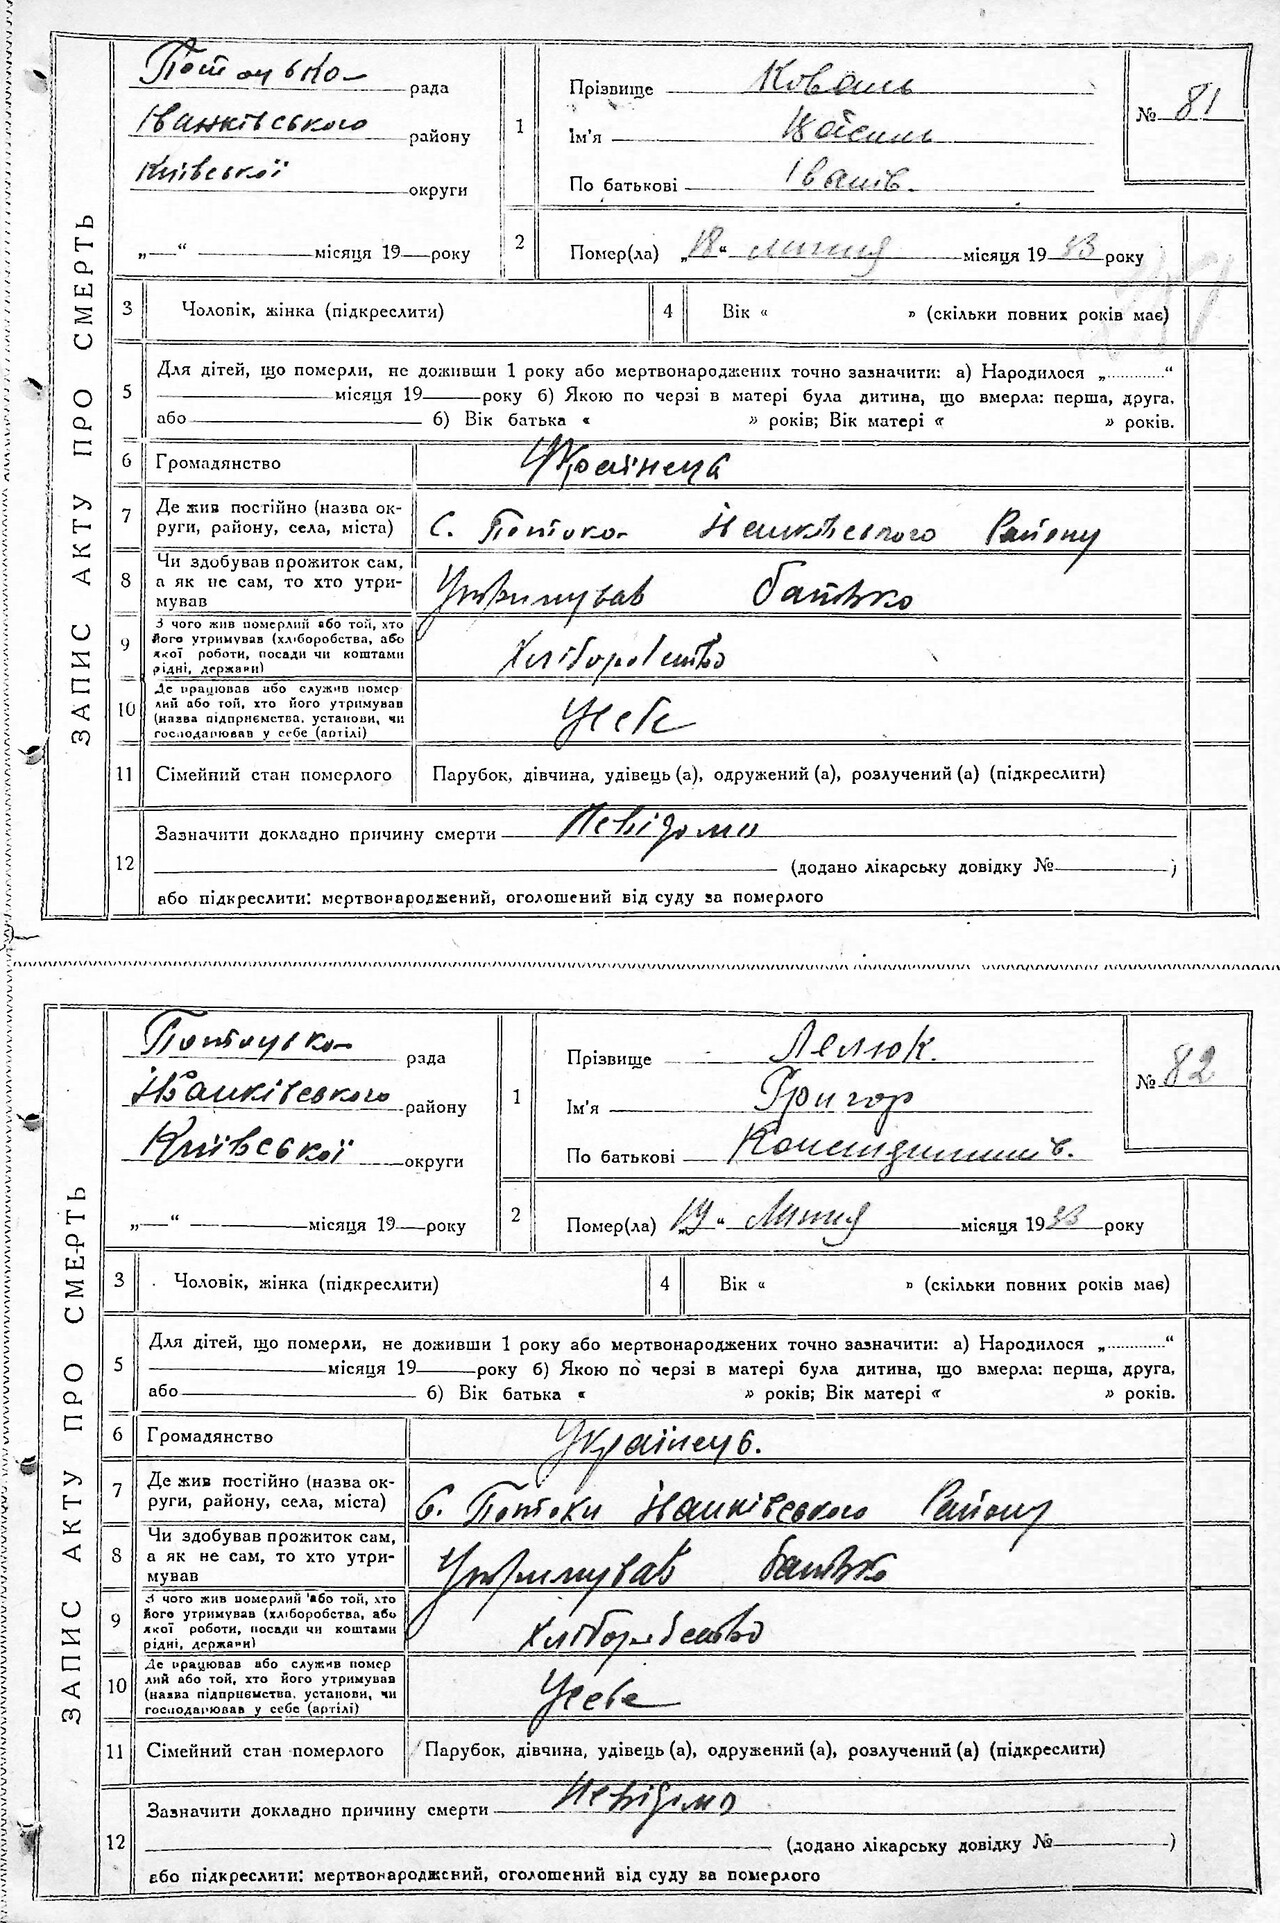 ЗАПИС АКТУ ПРО СМЕРТЬ
рада
Іванківського району
Київської округи
„—“ місяця 19—року
1
Прізвище Коваль
Ім'я Василь
По батькові Іванів.
№ 81
2
Помер(ла) „18“ липня місяця 1933 року
3 Чоловік, жінка (підкреслити)
4 Вік « » (скільки повних років має)
5
Для дітей, що померли, не доживши 1 року або мертвонароджених точно зазначити: а) Народилося „............“
місяця 19 року б) Якою по черзі в матері була дитина, що вмерла: перша, друга,
або б) Вік батька « » років; Вік матері « » років.
6 Громадянство Українець
7 Де жив постійно (назва ок-
руги, району, села, міста) с. Району
8 Чи здобував прожиток сам,
а як не сам, то хто утри-
мував Утримував батько
9 З чого жив померлий або той, хто
його утримував (хліборобства, або
якої роботи, посади чи коштами
рідні, держави) Хліборобство
10 Де працював або служив помер
лий або той, хто його утримував
(назва підприємства, установи, чи
господарював у себе (артілі) У себе
11 Сімейний стан померлого Парубок, дівчина, удівець (а), одружений (а), розлучений (а) (підкреслити)
12
Зазначити докладно причину смерти Невідомо
(додано лікарську довідку № )
або підкреслити: мертвонароджений, оголошений від суду за померлого
ЗАПИС АКТУ ПРО СМЕРТЬ
Потоцько- рада
Іванківського району
Київської округи
„—“ місяця 19—року
1
Прізвище Лелюк.
Ім'я Григор
По батькові
№ 82
2
Помер(ла) „19“ Липня місяця 1933 року
3 Чоловік, жінка (підкреслити)
4 Вік « » (скільки повних років має)
5
Для дітей, що померли, не доживши 1 року або мертвонароджених точно зазначити: а) Народилося „............“
місяця 19 року б) Якою по черзі в матері була дитина, що вмерла: перша, друга,
або б) Вік батька « » років; Вік матері « » років.
6 Громадянство Українець.
7 Де жив постійно (назва ок-
руги, району, села, міста) с. Потоки Іванківського Району
8 Чи здобував прожиток сам,
а як не сам, то хто утри-
мував Утримував батько
9 З чого жив померлий або той, хто
його утримував (хліборобства, або
якої роботи, посади чи коштами
рідні, держави) хліборобство
10 Де працював або служив помер
лий або той, хто його утримував
(назва підприємства, установи, чи
господарював у себе (артілі) У себе
11 Сімейний стан померлого Парубок, дівчина, удівець (а), одружений (а), розлучений (а) (підкреслити)
12
Зазначити докладно причину смерти Невідомо
(додано лікарську довідку № )
або підкреслити: мертвонароджений, оголошений від суду за померлого